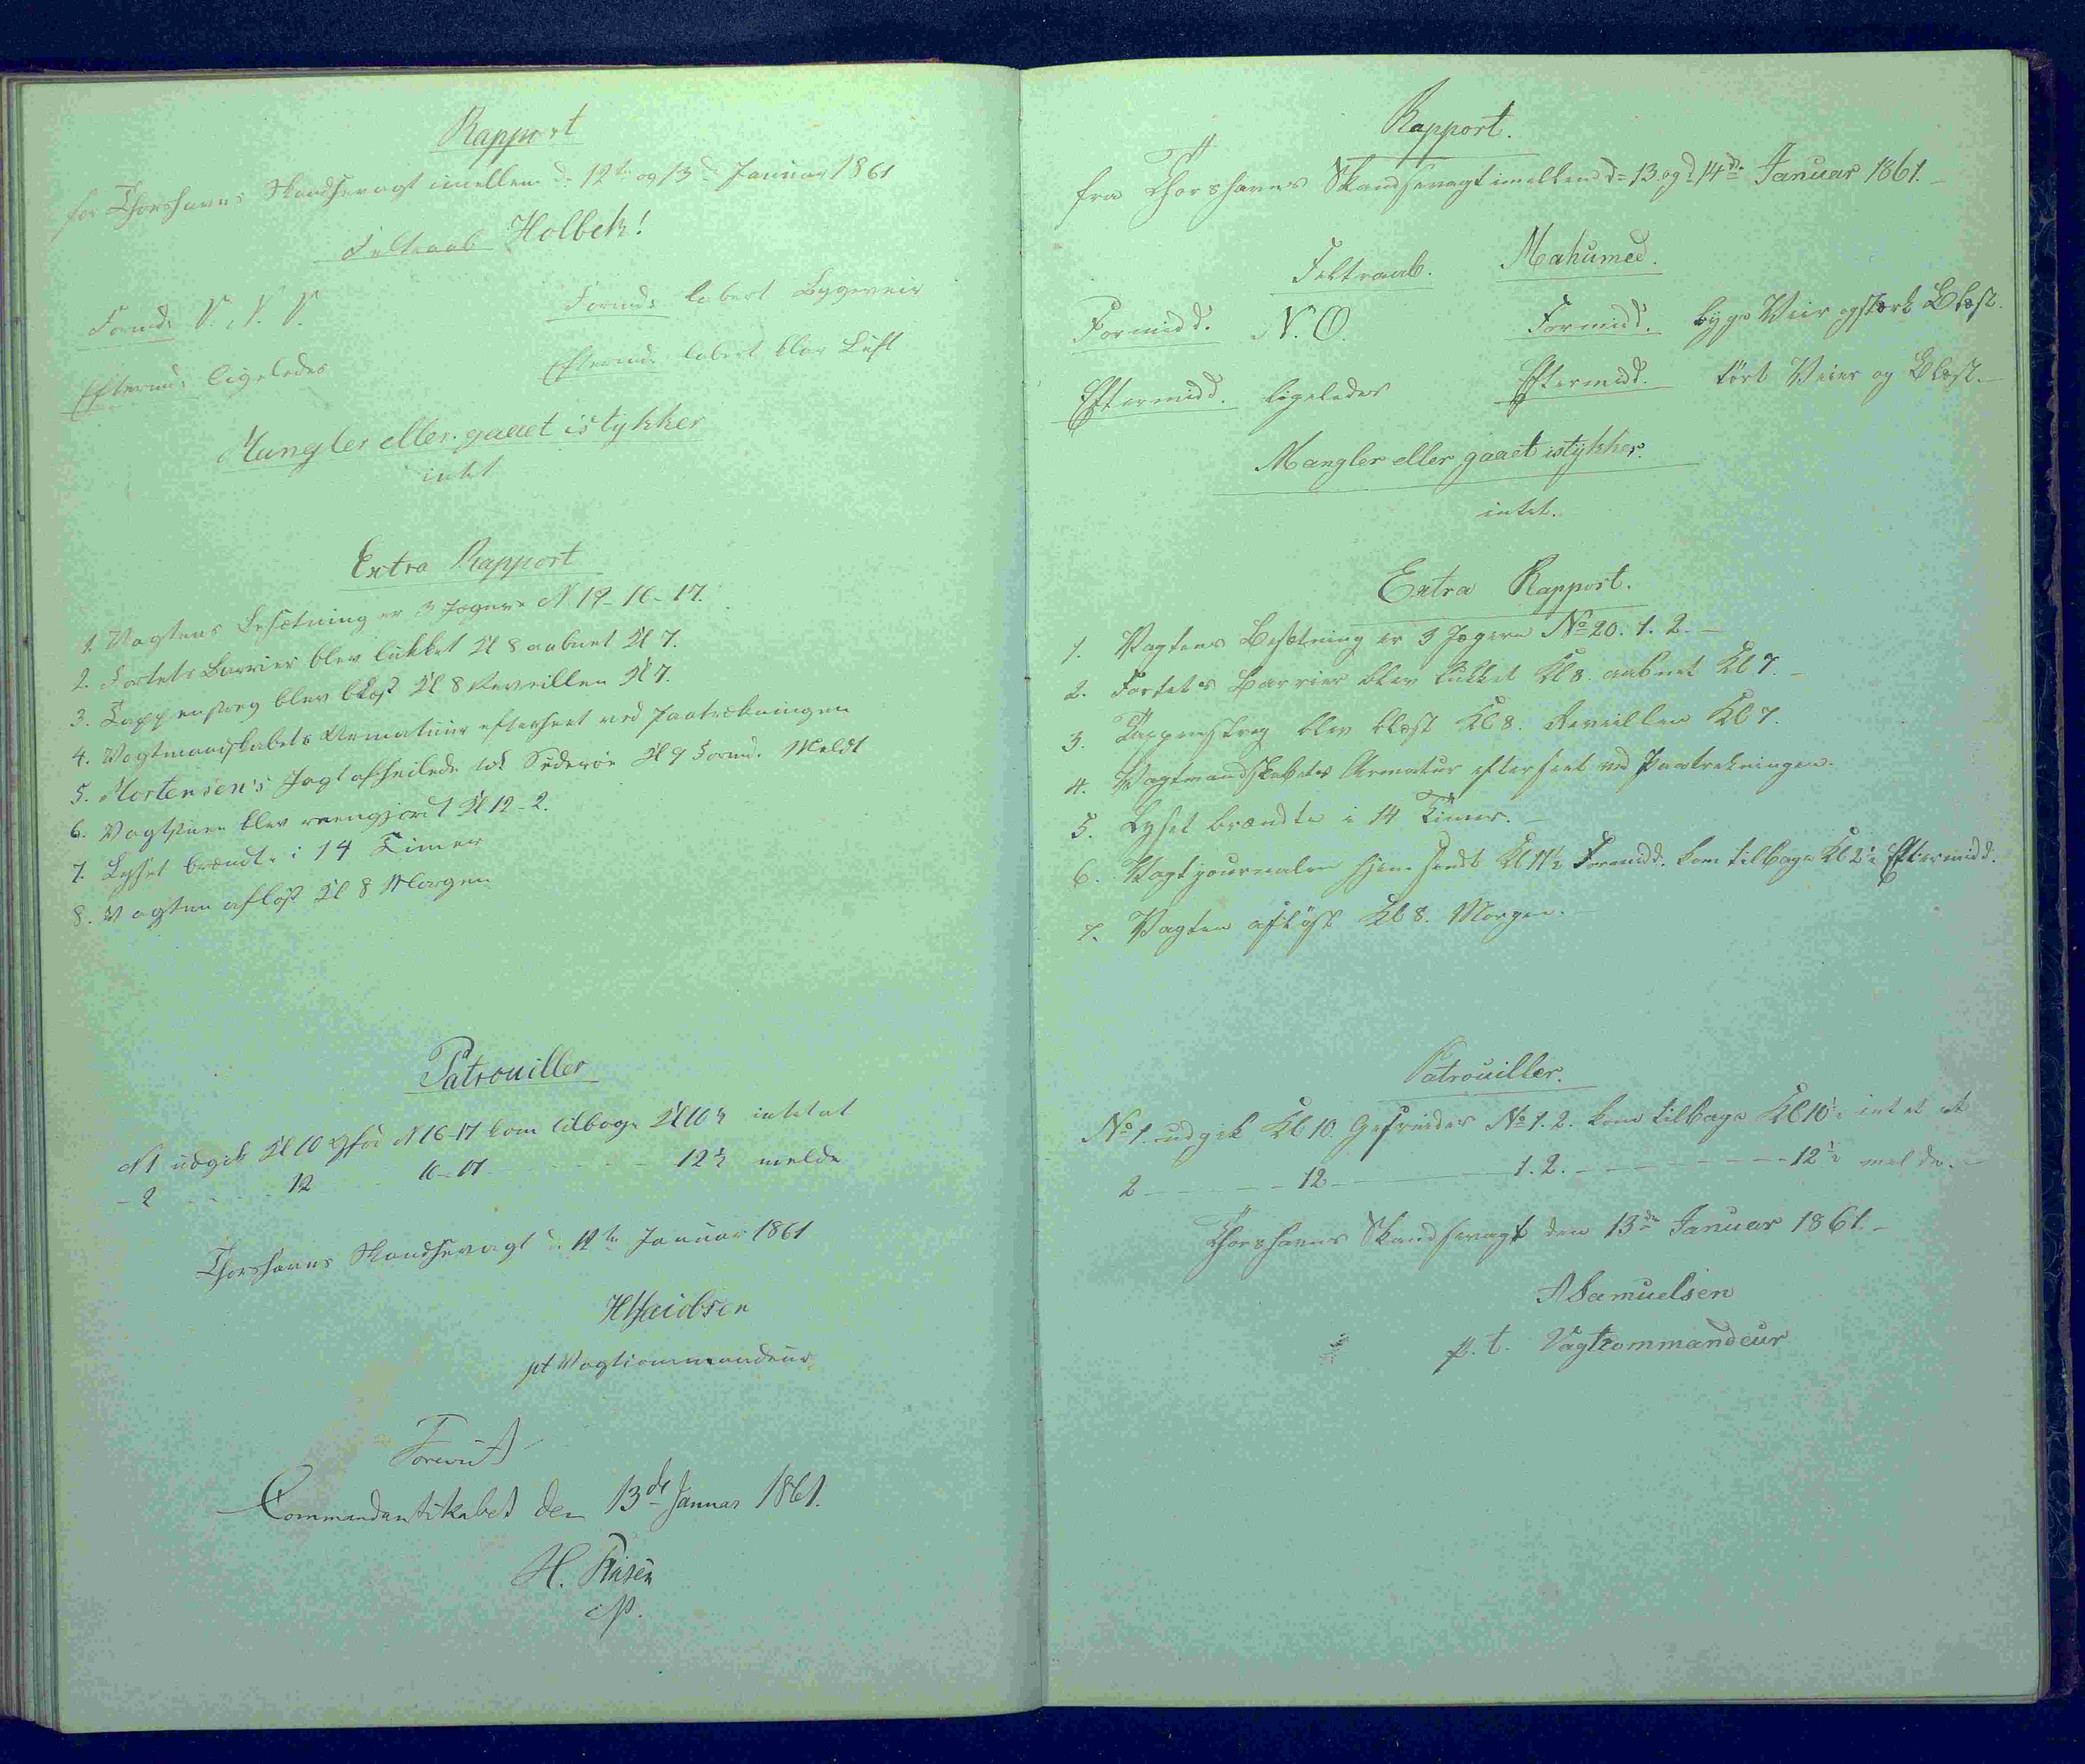 Rapport
for Thorshavns Skandsevagt imellem d. 12te og 13de Januar 1861
Feltraab Holbek!
Formd: V. N. V.
Formd: labert Bygeveir
Eftermd: ligeledes
Eftermd: labert klar Luft
Mangler eller gaaet istykker
intet
Extra Rapport
1. Vagtens Besætning er 3 Jægere N 19-16-17.
2. Fortets Barrier blev lukket Kl 8 aabnet Kl 7.
3. Tappenstreg blev blæst Kl 8 Reveillen Kl 7.
4. Vagtmandskabets Armatuur efterseet ved Paatrækningen
5. Mortensen's Jagt afseilede til Suderöe Kl 9 Formd. Meldt
6. Vagtstuen blev reengjordt Kl 12-2.
7. Lyset brændte i 14 Timer
8. Vagten aflöst Kl 8 Morgen
Patrouiller
N1 udgik Kl 10 N 16-17 kom tilbage Kl 10½ intet at
- 2 - - - 12 - - 16-17 - - - - - 12½ melde
Thorshavns Skandsevagt d. 12te Januar 1861
HJacobsen
pt Vagtcommandeur
Foreviist
Commandantskabet den 13de Januar 1861.
H.
Rapport.
fra Thorshavns Skandsevagt imellem d= 13. og d 14de Januar 1861.
Feltraab. Mahumed.
Formidd. N. O.
Formidd. byge Veir og stærk Blæst.
Eftermidd. ligeledes
Eftermidd. tört Veier og Blæst.
Mangler eller gaaet istykker.
intet.
Extra Rapport.
1. Vagtens Besætning er 3 Jægere No 20. 1. 2. -
2. Fortets Barrier blev lukket Kl 8. aabnet Kl 7. -
3. Tappenstreg blev blæst Kl 8. Reveillen Kl 7.
4. Vagtmandskabets Armatur efterseet ved Paatrekningen.
5. Lyset brændte i 14 Timer. -
6. Vagtjournalen hjemsendt Kl 11½ Formidd. kom tilbage Kl 2½ Eftermidd.
7. Vagten aflöst Kl 8. Morgen. -
Patrouiller.
No 1. udgik Kl 10. Gefreider No 1. 2. kom tilbage Kl 10½ intet at
2 - - - - 12 - - - - 1. 2. - - - - - 12½ melde. -
Thorshavns Skandsevagt den 13de Januar 1861. -
ASamuelsen
p. t. Vagtcommandeur